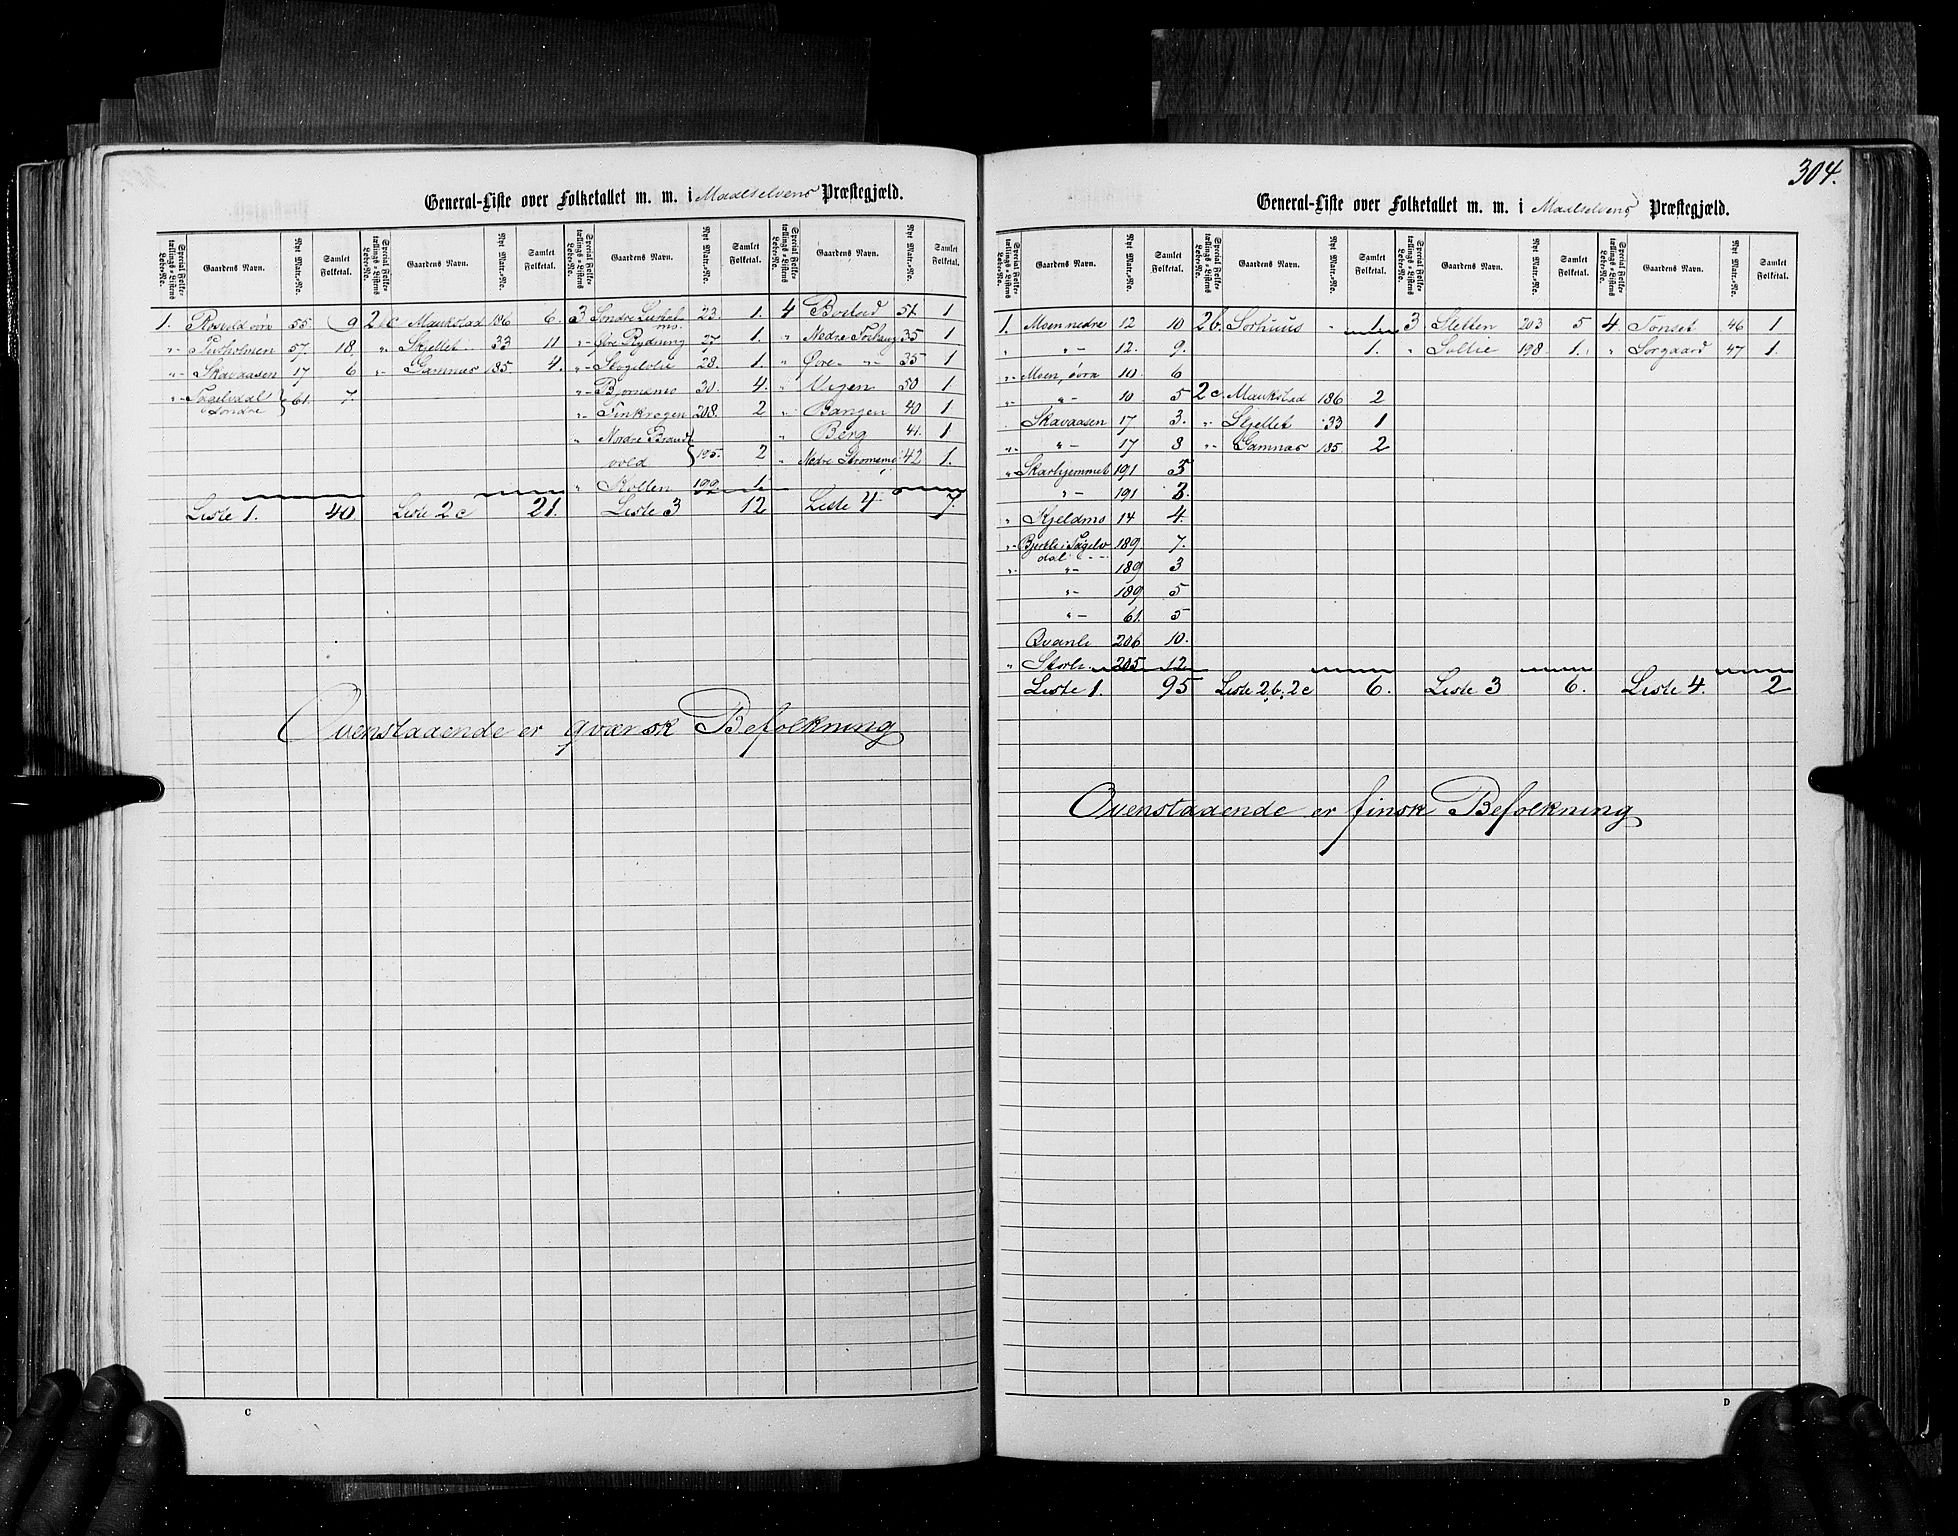 General-Liste over Folketallet m. m. i Maalselvens Præstegjæld.
Special Folketællings-Listens Løbe-No. Gaardens Navn. Nyt Matr.-No. Samlet Folketal. Special Folketællings-Listens Løbe-No. Gaardens Navn. Nyt Matr.-No. Samlet Folketal. Special Folketællings-Listens Løbe-No. Gaardens Navn. Nyt Matr.-No. Samlet Folketal. Special Folketællings-Listens Løbe-No. Gaardens Navn. Nyt Matr.-No. Samlet Folketal.
1. Rosvold øvre 55. 9 2 c Maukstad 186 6. 3 Søndre Leirhol- 23. 1. 4 51 1
mo.
"- 57. 18. " Skjellet 33 11 "- Øvre Rydning 27 1. " Nedre 35 1
"- Skavaasen 17 6 "- Gamnæs 185 4. "- Skogelvlie 28. 1. " Øvre "- 35 1
"- Sagelvdal } 61. 7. "- Bjørnemo 30. 4. " 50 1
Søndre
"- Finkrogen 208. 2 " Bangen 40 1
" Nordre Brand } " Berg 41. 1
vold 195. 2 " Nedre Strømsmo 42 1.
" Kolten 199. 1.
Liste 1. 40. Liste 2 c 21. Liste 3 12 Liste 4 7.
Ovenstaaende er qvænsk Befolkning
C
304.
General-Liste over Folketallet m. m. i Maalselvens Præstegjæld.
Special Folketællings-Listens Løbe-No. Gaardens Navn. Nyt Matr.-No. Samlet Folketal. Special Folketællings-Listens Løbe-No. Gaardens Navn. Nyt Matr.-No. Samlet Folketal. Special Folketællings-Listens Løbe-No. Gaardens Navn. Nyt Matr.-No. Samlet Folketal. Special Folketællings-Listens Løbe-No. Gaardens Navn. Nyt Matr.-No. Samlet Folketal.
1. Moen nedre 12 10 2b. Sørhuus - 1. 3 Sletten 203 5 4 Tønset 46 1
" "- 12. 9. 1. " Sollie 198. 1. " Sørgaard 47 1.
"- Moen, øvre 10 6
"- "- 10 5 2 c. Maukstad 186 2
Skavaasen 17 3. " Skjellet 33 1
"- "- 17 8 "- Gamnæs 185 2
" Skarhjemmet 191 5
"- 191 3.
" Kjeldmo 14 4.
"- Bjerkli i Sagelv- 189 7.
dal
"- "- 189 3
"- 189 5
"- 61. 5
Qvanli 206 10.
" Storli 205 12
Liste 1. 95 Liste 2b, 2c 6. Liste 3 6. Liste 4. 2
Ovenstaaende er finsk Befolkning
D